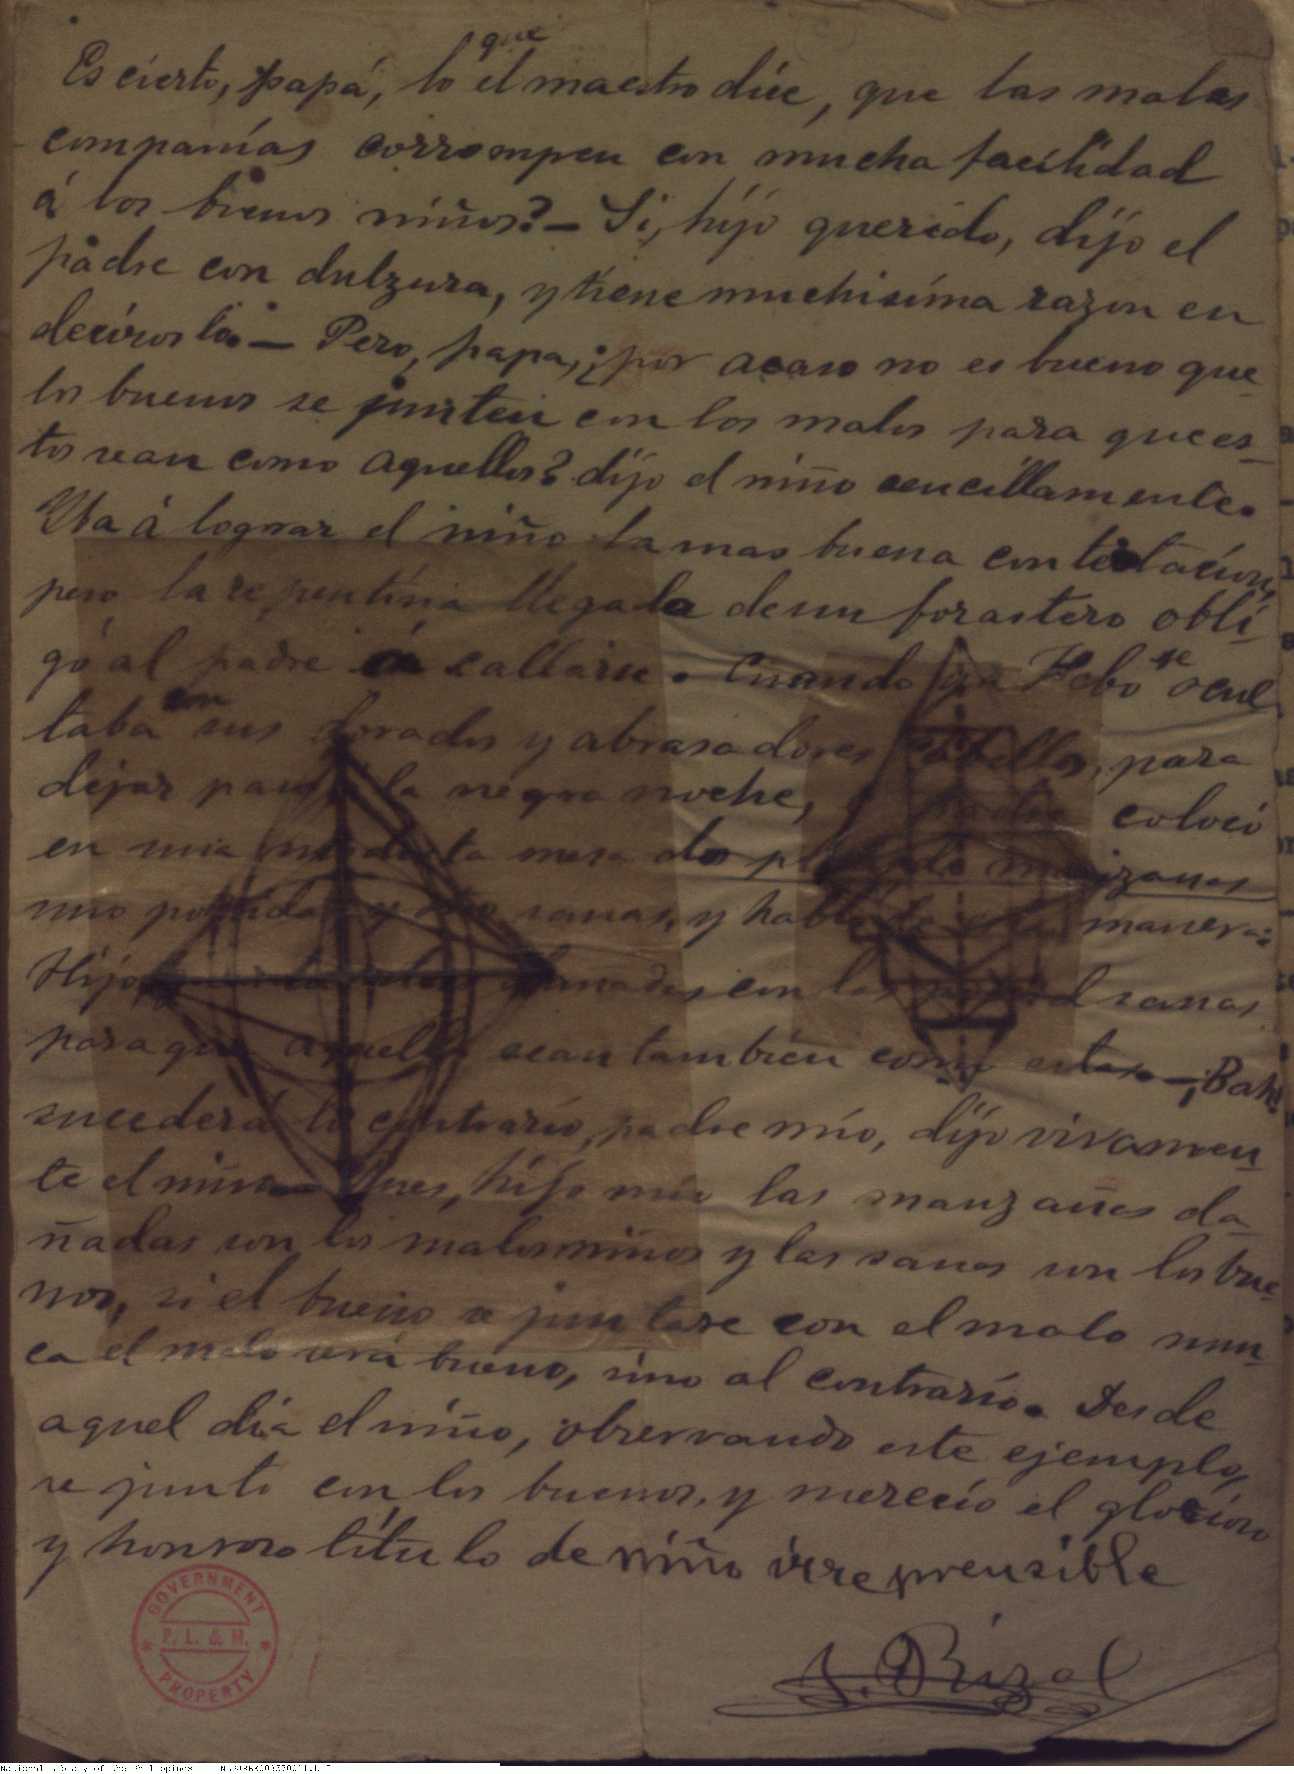 que
Es cierto, papá, lo el maestro dice, que las malas
companías corrompen con mucha facilidad
á los buenos niños? — Si, hijo querido, dijo el
padre con dulzura, y tiene muchisima razon en
deciroslo. — Pero, papa, ¿por acaso no es bueno que
los buenos se junten con los malos para que es-
tos sean como aquellos? dijo el niño sencillamente.
Yba á lograr el niño la mas buena contestacion,
pero la repentina llegada de un forastero obli-
gó al padre á callarse. Cuando ya Febo se ocul-
taba con sus dorados y abrasadores cabellos, para
dejar paso á la negra noche, el padre colocó
en una modesta mesa dos manzanas
uno podridas y otro sanas, y habló de esta manera:
Hijo, dañadas con las sanas
para que aquellas sean también como estas. — ¡Bah!
sucederá lo contrario, padre mio, dijo vivamen-
te el niño. — Pues, hijo mio las manzanas da-
ñadas son los malos niños y las sanas son los bue-
nos, si el bueno se juntase con el malo nun-
ca el malo será bueno, sino al contrario. Desde
aquel dia el niño, observando este ejemplo,
se junto con los buenos, y merecio el glorioso
y honroso título de niño irreprensible
J. Rizal
GOVERNMENT
P. L. & M.
PROPERTY
National Library of the Philippines